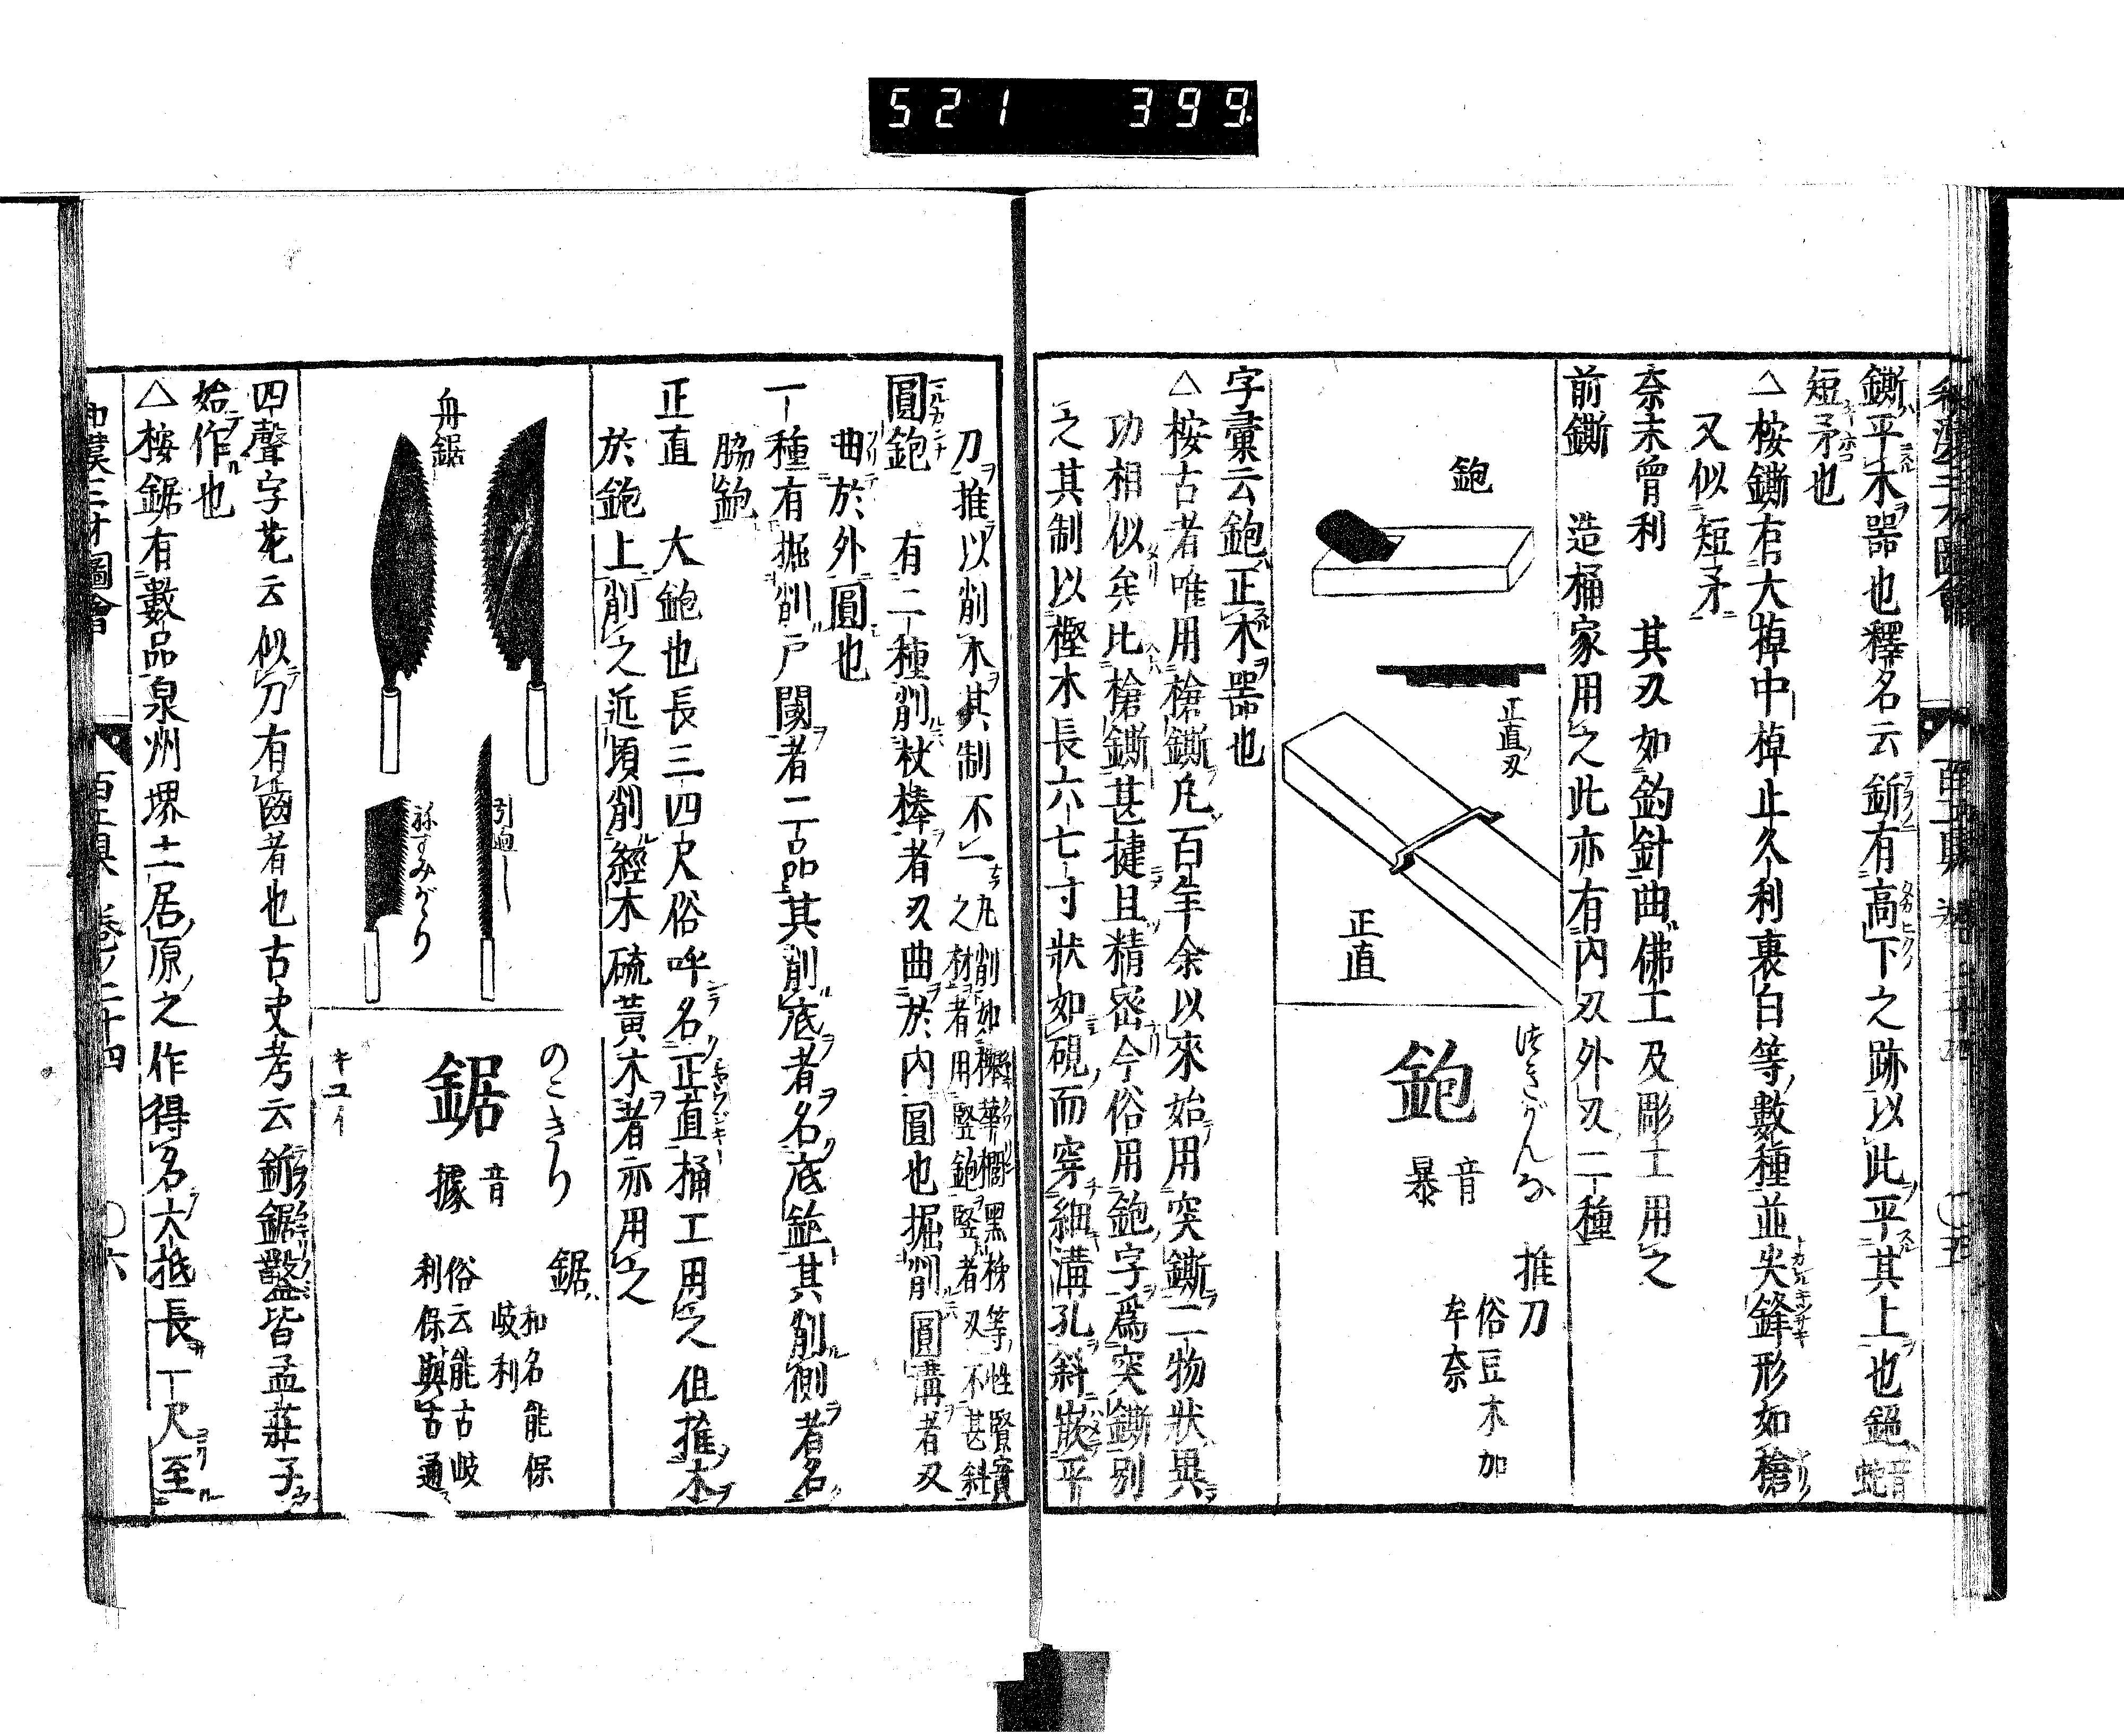 521 399
鐁平木器也釋名云斵有高下之跡以此平其上也鉇音蛇
短矛也
△按鐁有大棹中棹止久利裏白等數種並尖鋒形如槍
又似短矛
奈末曾利 其刃如釣針曲佛工及彫工用之
前鐁 造桶家用之此亦有内刃外刃二種
鉋
正直ノ刃
正直
つきがんな
鉋 音暴
推刀
俗豆木加牟奈
字彙云鉋正木器也
△按古者唯用槍鐁凡百年余以來始用突鐁二物狀異
功相似矣比槍鐁甚捷且精密今俗用鉋字爲突鐁別
之其制以樫木長六七寸狀如硯而穿細溝孔斜嵌平
刀推以削木其制不一
圓鉋 有二種削杖棒者刃曲於内圓也掘削圓溝者刃
曲於外圓也
一種有掘削戸閾者二品其削底者名底鉋其削側者名
脇鉋
正直 大鉋也長三四尺俗呼名正直桶工用之但推木
於鉋上削之近頃削經木硫黄木者亦用之
舟鋸
引廻し
ねずみがり
のこぎり
鋸 音據
キユイ
鋸
和名能保岐利
俗云能古岐利保與古通
四聲字苑云似刀有齒者也古史考云斵鋸鑿皆孟莊子
始作也
△按鋸有數品泉州堺土居原之作得名大抵長一尺至